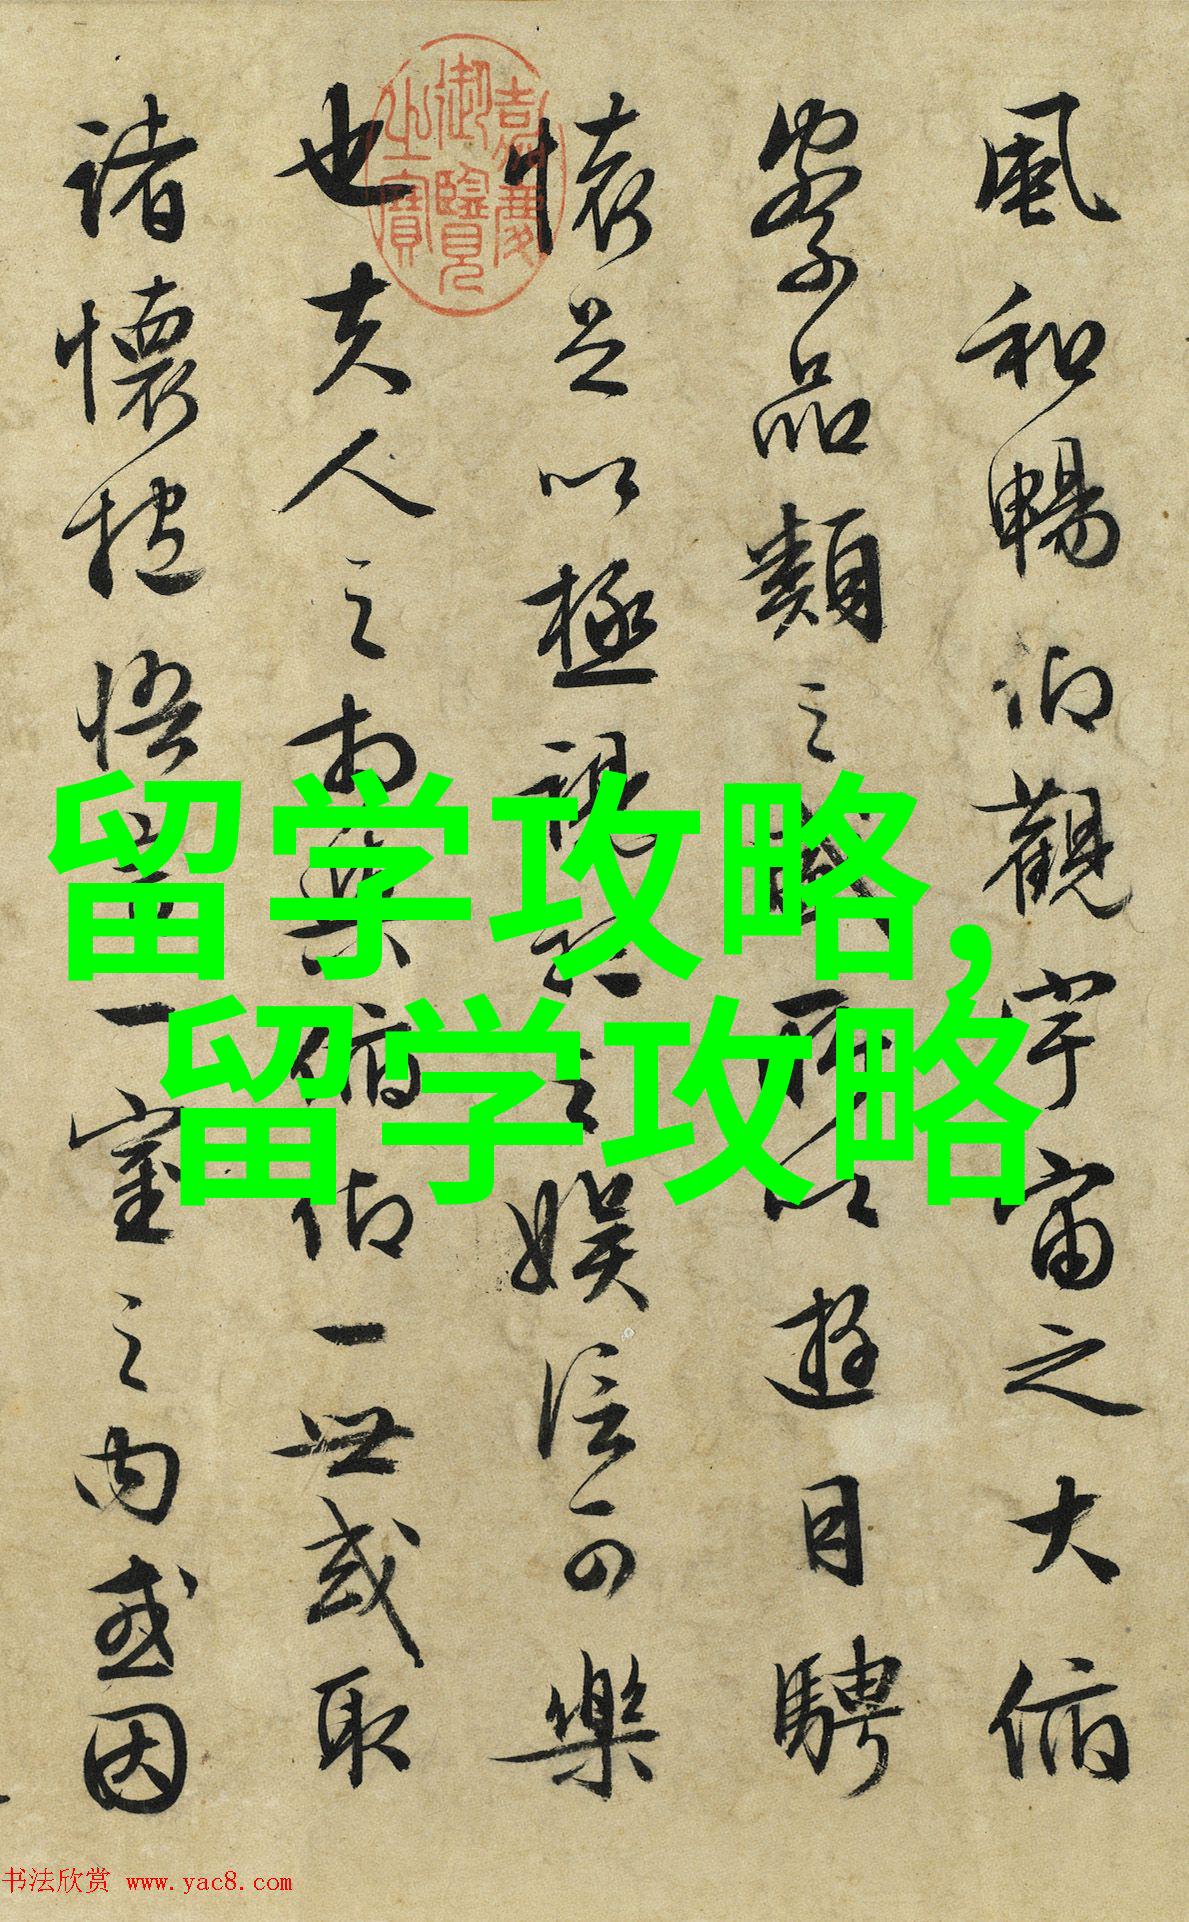 風和暢仰觀宇宙之大俯
察品類之盛所以遊目騁
懷足以極視之娛信可樂
也夫人之相與俯仰一世或取
諸懷抱悟一室之內或因
嘉慶御覽之寶
留学攻略,
留学攻略
书法欣赏 www.yac8.com